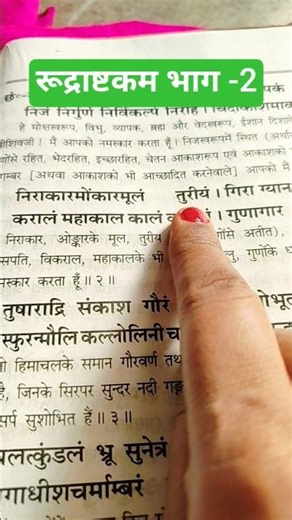 रूद्राष्टकम भाग -2
निजं निर्गुणं निर्विकल्पं निरीहं । चिदाकाशमाका
हे मोक्षस्वरूप, विभु, व्यापक, ब्रह्म और वेदस्वरूप, ईशान दिशाके
शिवजी ! मैं आपको नमस्कार करता हूँ। निजस्वरूपमें स्थित (अर्थात्
रहित, भेदरहित, इच्छारहित, चेतन आकाशरूप एवं आकाशको
म्बर [अथवा आकाशको भी आच्छादित करनेवाले] आपको
निराकारमोंकारमूलं तुरीयं । गिरा ग्यान
करालं महाकाल कालं । गुणागार
निराकार, ओङ्कारके मूल, तुरीय अतीत),
विकराल, महाकालके भी गुणोंके
स्कार करता हूँ ॥ २ ॥
तुषाराद्रि संकाश गौरं
स्फुरन्मौलि कल्लोलिनी च
हिमाचलके समान गौरवर्ण
है, जिनके सिरपर सुन्दर नदी
सर्प सुशोभित हैं ॥ ३ ॥
चलत्कुंडलं भ्रू सुनेत्रं
गाधीशचर्माम्बरं